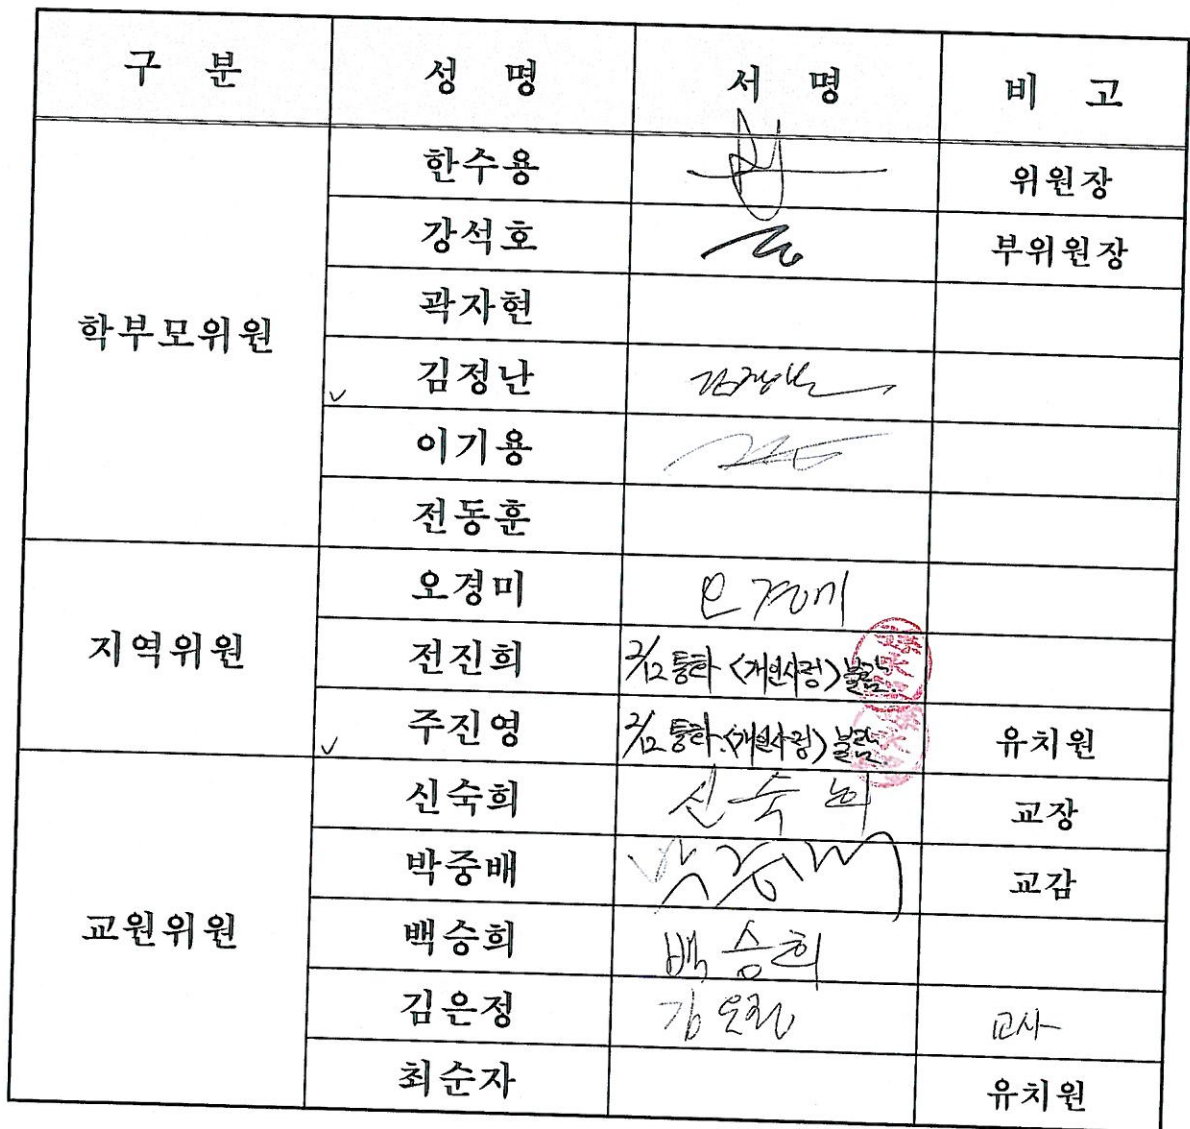 구 분 성 명 서 명 비 고
학부모위원
한수용 위원장
강석호 부위원장
곽자현
김정난 김정난
이기용
전동훈
지역위원
오경미 오경미
전진희 2/12 통화 <개인사정> 불참.
주진영 2/12 통화. <개인사정> 불참. 유치원
교원위원
신숙희 신숙희 교장
박중배 박중배 교감
백승희 백승희
김은정 김은정 교사
최순자 유치원